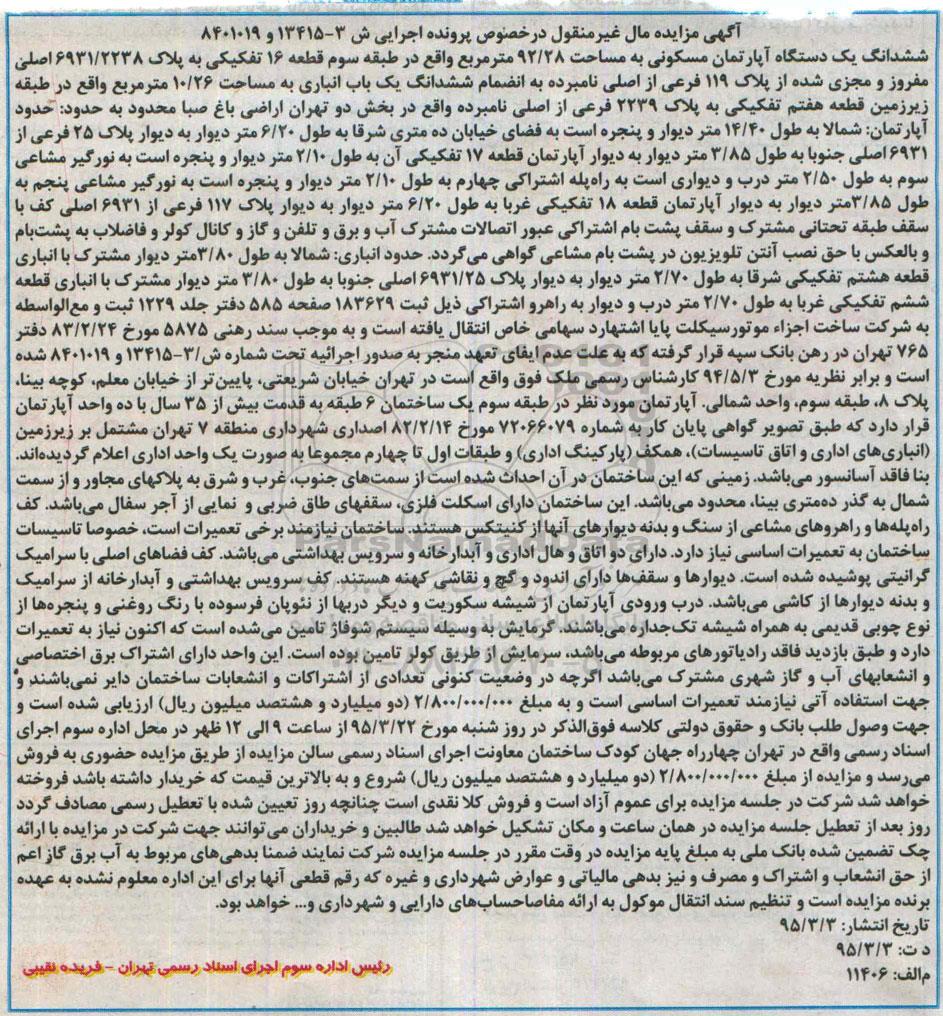 آگهی مزایده مال غیرمنقول درخصوص پرونده اجرایی ش ۳-۱۳۴۱۵ و ۸۴۰۱۰۱۹
ششدانگ یک دستگاه آپارتمان مسکونی به مساحت ۹۲/۲۸ مترمربع واقع در طبقه سوم قطعه ۱۶ تفکیکی به پلاک ۶۹۳۱/۲۲۳۸ اصلی
مفروز و مجزی شده از پلاک ۱۱۹ فرعی از اصلی نامبرده به انضمام ششدانگ یک باب انباری به مساحت ۱۰/۲۶ مترمربع واقع در طبقه
زیرزمین قطعه هفتم تفکیکی به پلاک ۲۲۳۹ فرعی از اصلی نامبرده واقع در بخش دو تهران اراضی باغ صبا محدود به حدود: حدود
آپارتمان: شمالا به طول ۱۴/۴۰ متر دیوار و پنجره است به فضای خیابان ده متری شرقا به طول ۶/۲۰ متر دیوار به دیوار پلاک ۲۵ فرعی از
۶۹۳۱ اصلی جنوبا به طول ۳/۸۵ متر دیوار به دیوار آپارتمان قطعه ۱۷ تفکیکی آن به طول ۲/۱۰ متر دیوار و پنجره است به نورگیر مشاعی
سوم به طول ۲/۵۰ متر درب و دیواری است به راه‌پله اشتراکی چهارم به طول ۲/۱۰ متر دیوار و پنجره است به نورگیر مشاعی پنجم به
طول ۳/۸۵متر دیوار به دیوار آپارتمان قطعه ۱۸ تفکیکی غربا به طول ۶/۲۰ متر دیوار به دیوار پلاک ۱۱۷ فرعی از ۶۹۳۱ اصلی کف با
سقف طبقه تحتانی مشترک و سقف پشت بام اشتراکی عبور اتصالات مشترک آب و برق و تلفن و گاز و کانال کولر و فاضلاب به پشت‌بام
و بالعکس با حق نصب آنتن تلویزیون در پشت بام مشاعی گواهی می‌گردد. حدود انباری: شمالا به طول ۳/۸۰متر دیوار مشترک با انباری
قطعه هشتم تفکیکی شرقا به طول ۲/۷۰ متر دیوار به دیوار پلاک ۶۹۳۱/۲۵ اصلی جنوبا به طول ۳/۸۰ متر دیوار مشترک با انباری قطعه
ششم تفکیکی غربا به طول ۲/۷۰ متر درب و دیوار به راهرو اشتراکی ذیل ثبت ۱۸۳۶۲۹ صفحه ۵۸۵ دفتر جلد ۱۲۲۹ ثبت و مع‌الواسطه
به شرکت ساخت اجزاء موتورسیکلت پایا اشتهارد سهامی خاص انتقال یافته است و به موجب سند رهنی ۵۸۷۵ مورخ ۸۳/۲/۲۴ دفتر
۷۶۵ تهران در رهن بانک سپه قرار گرفته که به علت عدم ایفای تعهد منجر به صدور اجرائیه تحت شماره ش/۳-۱۳۴۱۵ و ۸۴۰۱۰۱۹ شده
است و برابر نظریه مورخ ۹۴/۵/۳ کارشناس رسمی ملک فوق واقع است در تهران خیابان شریعتی، پایین‌تر از خیابان معلم، کوچه بینا،
پلاک ۸، طبقه سوم، واحد شمالی. آپارتمان مورد نظر در طبقه سوم یک ساختمان ۶ طبقه به قدمت بیش از ۳۵ سال با ده واحد آپارتمان
قرار دارد که طبق تصویر گواهی پایان کار به شماره ۷۲۰۶۶۰۷۹ مورخ ۸۲/۲/۱۴ اصداری شهرداری منطقه ۷ تهران مشتمل بر زیرزمین
(انباری‌های اداری و اتاق تاسیسات)، همکف (پارکینگ اداری) و طبقات اول تا چهارم مجموعا به صورت یک واحد اداری اعلام گردیده‌اند.
بنا فاقد آسانسور می‌باشد. زمینی که این ساختمان در آن احداث شده است از سمت‌های جنوب، غرب و شرق به پلاکهای مجاور و از سمت
شمال به گذر ده‌متری بینا، محدود می‌باشد. این ساختمان دارای اسکلت فلزی، سقفهای طاق ضربی و نمایی از آجر سفال می‌باشد. کف
راه‌پله‌ها و راهروهای مشاعی از سنگ و بدنه دیوارهای آنها از کنیتکس هستند. ساختمان نیازمند برخی تعمیرات است، خصوصا تاسیسات
ساختمان به تعمیرات اساسی نیاز دارد. دارای دو اتاق و هال اداری و آبدارخانه و سرویس بهداشتی می‌باشد. کف فضاهای اصلی با سرامیک
گرانیتی پوشیده شده است. دیوارها و سقف‌ها دارای اندود و گچ و نقاشی کهنه هستند. کف سرویس بهداشتی و آبدارخانه از سرامیک
و بدنه دیوارها از کاشی می‌باشد. درب ورودی آپارتمان از شیشه سکوریت و دیگر دربها از نئوپان فرسوده با رنگ روغنی و پنجره‌ها از
نوع چوبی قدیمی به همراه شیشه تک‌جداره می‌باشند. گرمایش به وسیله سیستم شوفاژ تامین می‌شده است که اکنون نیاز به تعمیرات
دارد و طبق بازدید فاقد رادیاتورهای مربوطه می‌باشد، سرمایش از طریق کولر تامین بوده است. این واحد دارای اشتراک برق اختصاصی
و انشعابهای آب و گاز شهری مشترک می‌باشد اگرچه در وضعیت کنونی تعدادی از اشتراکات و انشعابات ساختمان دایر نمی‌باشند و
جهت استفاده آتی نیازمند تعمیرات اساسی است و به مبلغ ۲/۸۰۰/۰۰۰/۰۰۰ (دو میلیارد و هشتصد میلیون ریال) ارزیابی شده است و
جهت وصول طلب بانک و حقوق دولتی کلاسه فوق‌الذکر در روز شنبه مورخ ۹۵/۳/۲۲ از ساعت ۹ الی ۱۲ ظهر در محل اداره سوم اجرای
اسناد رسمی واقع در تهران چهارراه جهان کودک ساختمان معاونت اجرای اسناد رسمی سالن مزایده از طریق مزایده حضوری به فروش
می‌رسد و مزایده از مبلغ ۲/۸۰۰/۰۰۰/۰۰۰ (دو میلیارد و هشتصد میلیون ریال) شروع و به بالاترین قیمت که خریدار داشته باشد فروخته
خواهد شد شرکت در جلسه مزایده برای عموم آزاد است و فروش کلا نقدی است چنانچه روز تعیین شده با تعطیل رسمی مصادف گردد
روز بعد از تعطیل جلسه مزایده در همان ساعت و مکان تشکیل خواهد شد طالبین و خریداران می‌توانند جهت شرکت در مزایده با ارائه
چک تضمین شده بانک ملی به مبلغ پایه مزایده در وقت مقرر در جلسه مزایده شرکت نمایند ضمنا بدهی‌های مربوط به آب برق گاز اعم
از حق انشعاب و اشتراک و مصرف و نیز بدهی مالیاتی و عوارض شهرداری و غیره که رقم قطعی آنها برای این اداره معلوم نشده به عهده
برنده مزایده است و تنظیم سند انتقال موکول به ارائه مفاصاحساب‌های دارایی و شهرداری و... خواهد بود.
تاریخ انتشار: ۹۵/۳/۳
د ت: ۹۵/۳/۳
م‌الف: ۱۱۴۰۶
رئیس اداره سوم اجرای اسناد رسمی تهران - فریده نقیبی
ParsNamadData